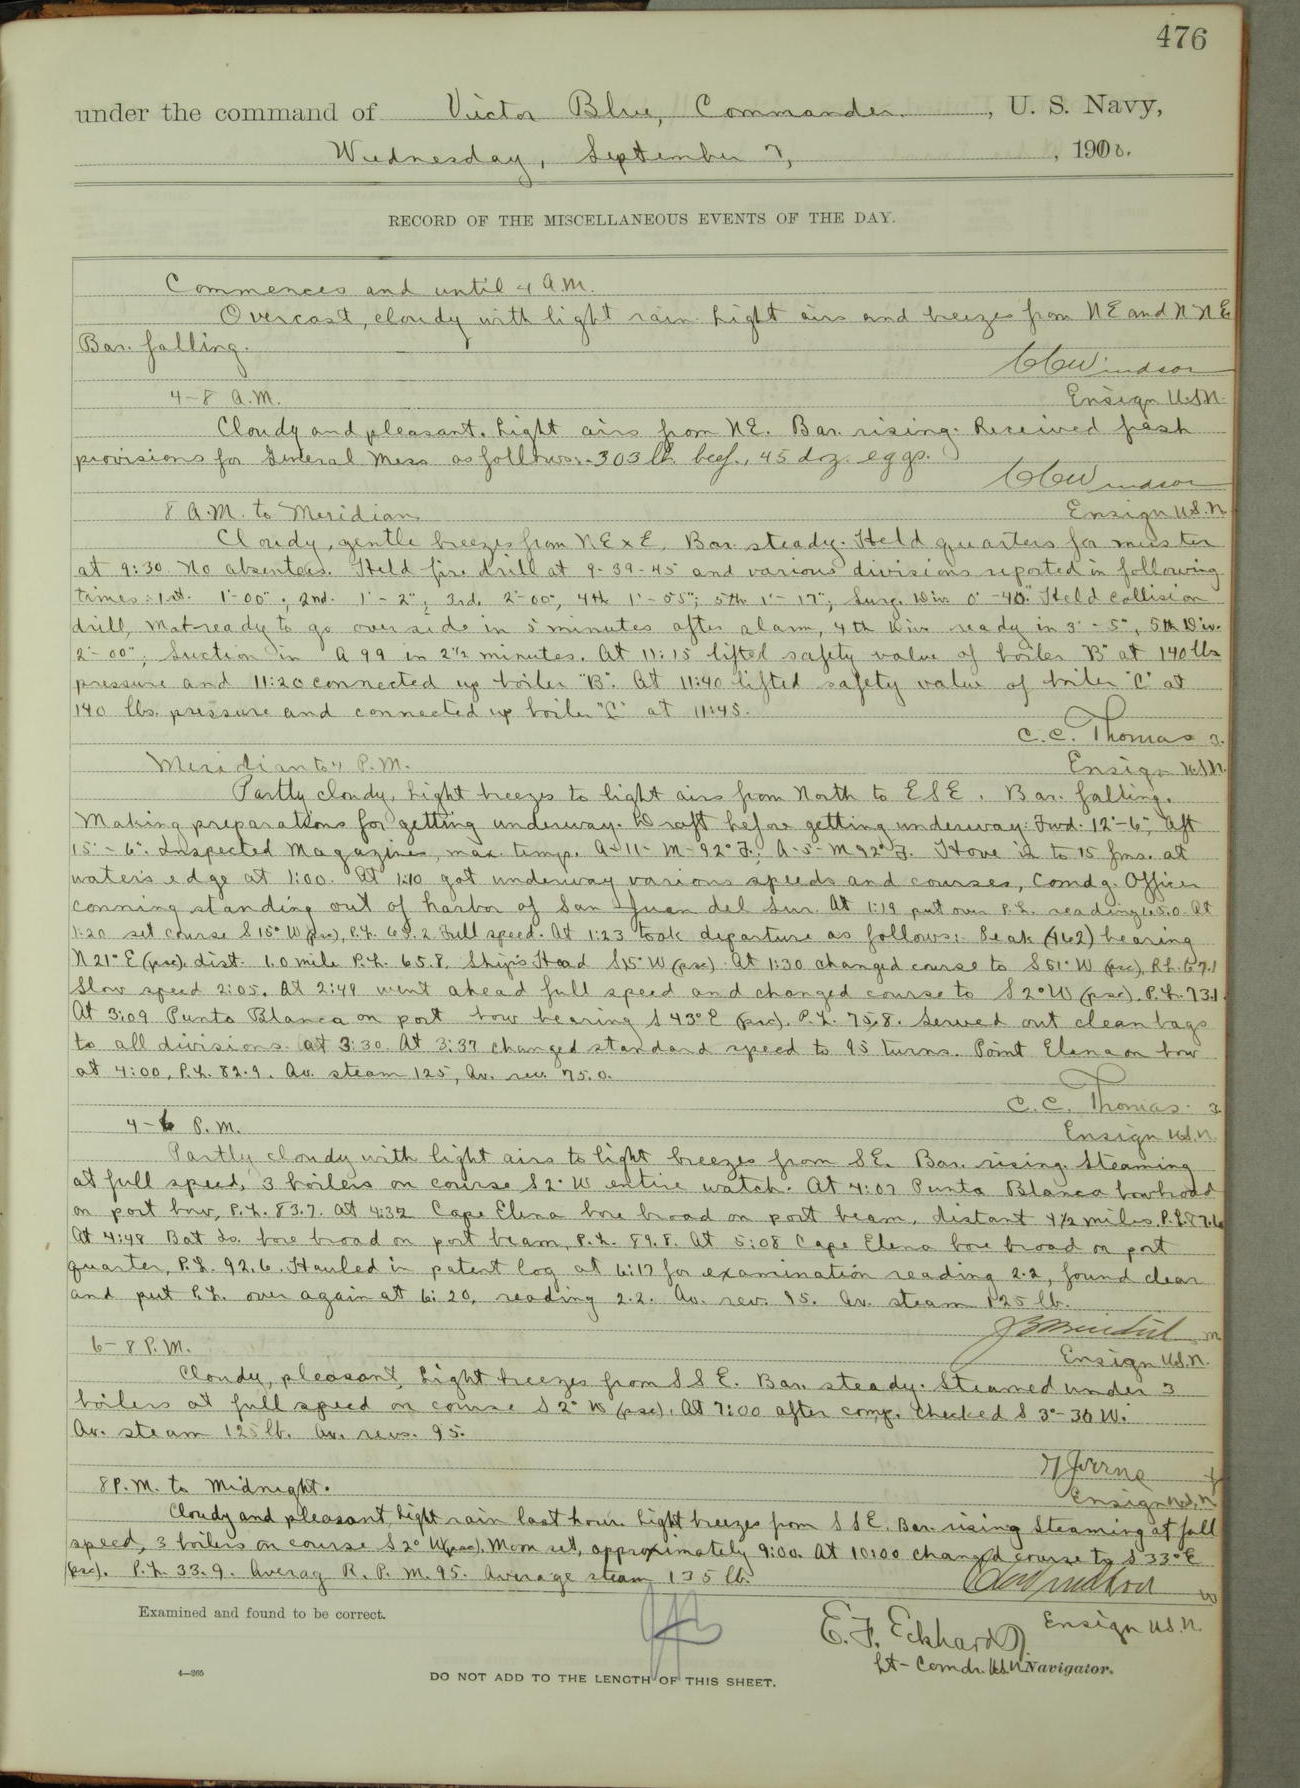 476
under the command of Victor Blue, Commander. , U. S. Navy,
Wednesday, September 7, , 1910.
RECORD OF THE MISCELLANEOUS EVENTS OF THE DAY.
Commences and until 4 A.M.
Overcast, cloudy with light rain. Light airs and breezes from NE and NNE
Bar. falling.
CCWindsor
4-8 A.M. Ensign U.S.N.
Cloudy and pleasant. Light airs from NE. Bar. rising. Received fresh
provisions for General Mess as follows:- 303 lb. beef., 45 doz. eggs.
CCWindsor
8 A.M. to Meridian Ensign U.S.N.
Cloudy, gentle breezes from NExE. Bar. steady. Held quarters for muster
at 9:30 No absentees. Held fire drill at 9-39-45 and various divisions reported in following
times: 1st. 1'-00"; 2nd. 1'-2"; 3rd. 2'-00", 4th 1'-55"; 5th 1'-17"; Surg. Div. 0'-40". Held collision
drill, mat ready to go over side in 5 minutes after alarm, 4th Div. ready in 3'-5", 5th Div.
2'-00"; Suction in A 99 in 2½ minutes. At 11:15 lifted safety valve of boiler "B" at 140 lbs
pressure and 11:20 connected up boiler "B". At 11:40 lifted safety valve of boiler "C" at
140 lbs. pressure and connected up boiler "C" at 11:45.
C. C. Thomas 3.
Meridian to 4 P.M. Ensign U.S.N.
Partly cloudy, light breezes to light airs from North to ESE. Bar. falling.
Making preparations for getting underway. Draft before getting underway: Fwd. 12'-6", Aft
15'-6". Inspected Magazines, max. temp. A-11-M-92°F.; A-5-M 92°F. Hove in to 15 fms. at
water's edge at 1:00. At 1:10 got underway various speeds and courses, Comdg. Officer
conning standing out of harbor of San Juan del Sur. At 1:19 put over P.L. reading 65.0. At
1:20 set course S 15° W (psc), P.L. 65.2 Full speed. At 1:23 took departure as follows: Peak (462) bearing
N 21° E (psc). dist. 1.0 mile P.L. 65.8. Ship's Head S15°W (psc). At 1:30 changed course to S 51° W (psc), P.L. 67.1
Slow speed 2:05. At 2:49 went ahead full speed and changed course to S 2° W (psc). P.L. 73.1
At 3:09 Punta Blanca on port bow bearing S 43° E (psc). P.L. 75.8. Served out clean bags
to all divisions at 3:30. At 3:37 changed standard speed to 95 turns. Point Elena on bow
at 4:00, P.L. 82.9. Av. steam 125, Av. rev. 75.0.
C. C. Thomas. 3.
4-6 P.M. Ensign U.S.N.
Partly cloudy with light airs to light breezes from SE. Bar. rising. Steaming
at full speed, 3 boilers on course S 2° W entire watch. At 4:07 Punta Blanca bow broad
on port bow, P.L. 83.7. At 4:32 Cape Elena bore broad on port beam, distant 4½ miles. P.L. 87.6
At 4:48 Bat Is. bore broad on port beam, P.L. 89.8. At 5:08 Cape Elena bore broad on port
quarter, P.L. 92.6. Hauled in patent log at 6:17 for examination reading 2.2, found clear
and put P.L. over again at 6:20, reading 2.2. Av. rev. 95. Av. steam 125 lb.
6-8 P.M. Ensign U.S.N.
Cloudy, pleasant, Light breezes from SSE. Bar. steady. Steamed under 3
boilers at full speed on course S 2° W (psc). At 7:00 after comp. checked S 3°-30 W.
Av. steam 125 lb. Av. revs. 95.
8 P.M. to Midnight.
Ensign U.S.N.
Cloudy and pleasant, Light rain last hour. Light breezes from SSE. Bar. rising Steaming at full
speed, 3 boilers on course S 2° W (psc). Moon set, approximately 9:00. At 10:00 changed course to S 33° E
(psc). P.L. 33.9. Averag R. P. M. 95. Average steam 135 lb.
Examined and found to be correct.
Ensign U.S.N.
E. F. Eckhardt
Lt-Comdr. U.S.N. Navigator.
4-265
DO NOT ADD TO THE LENGTH OF THIS SHEET.